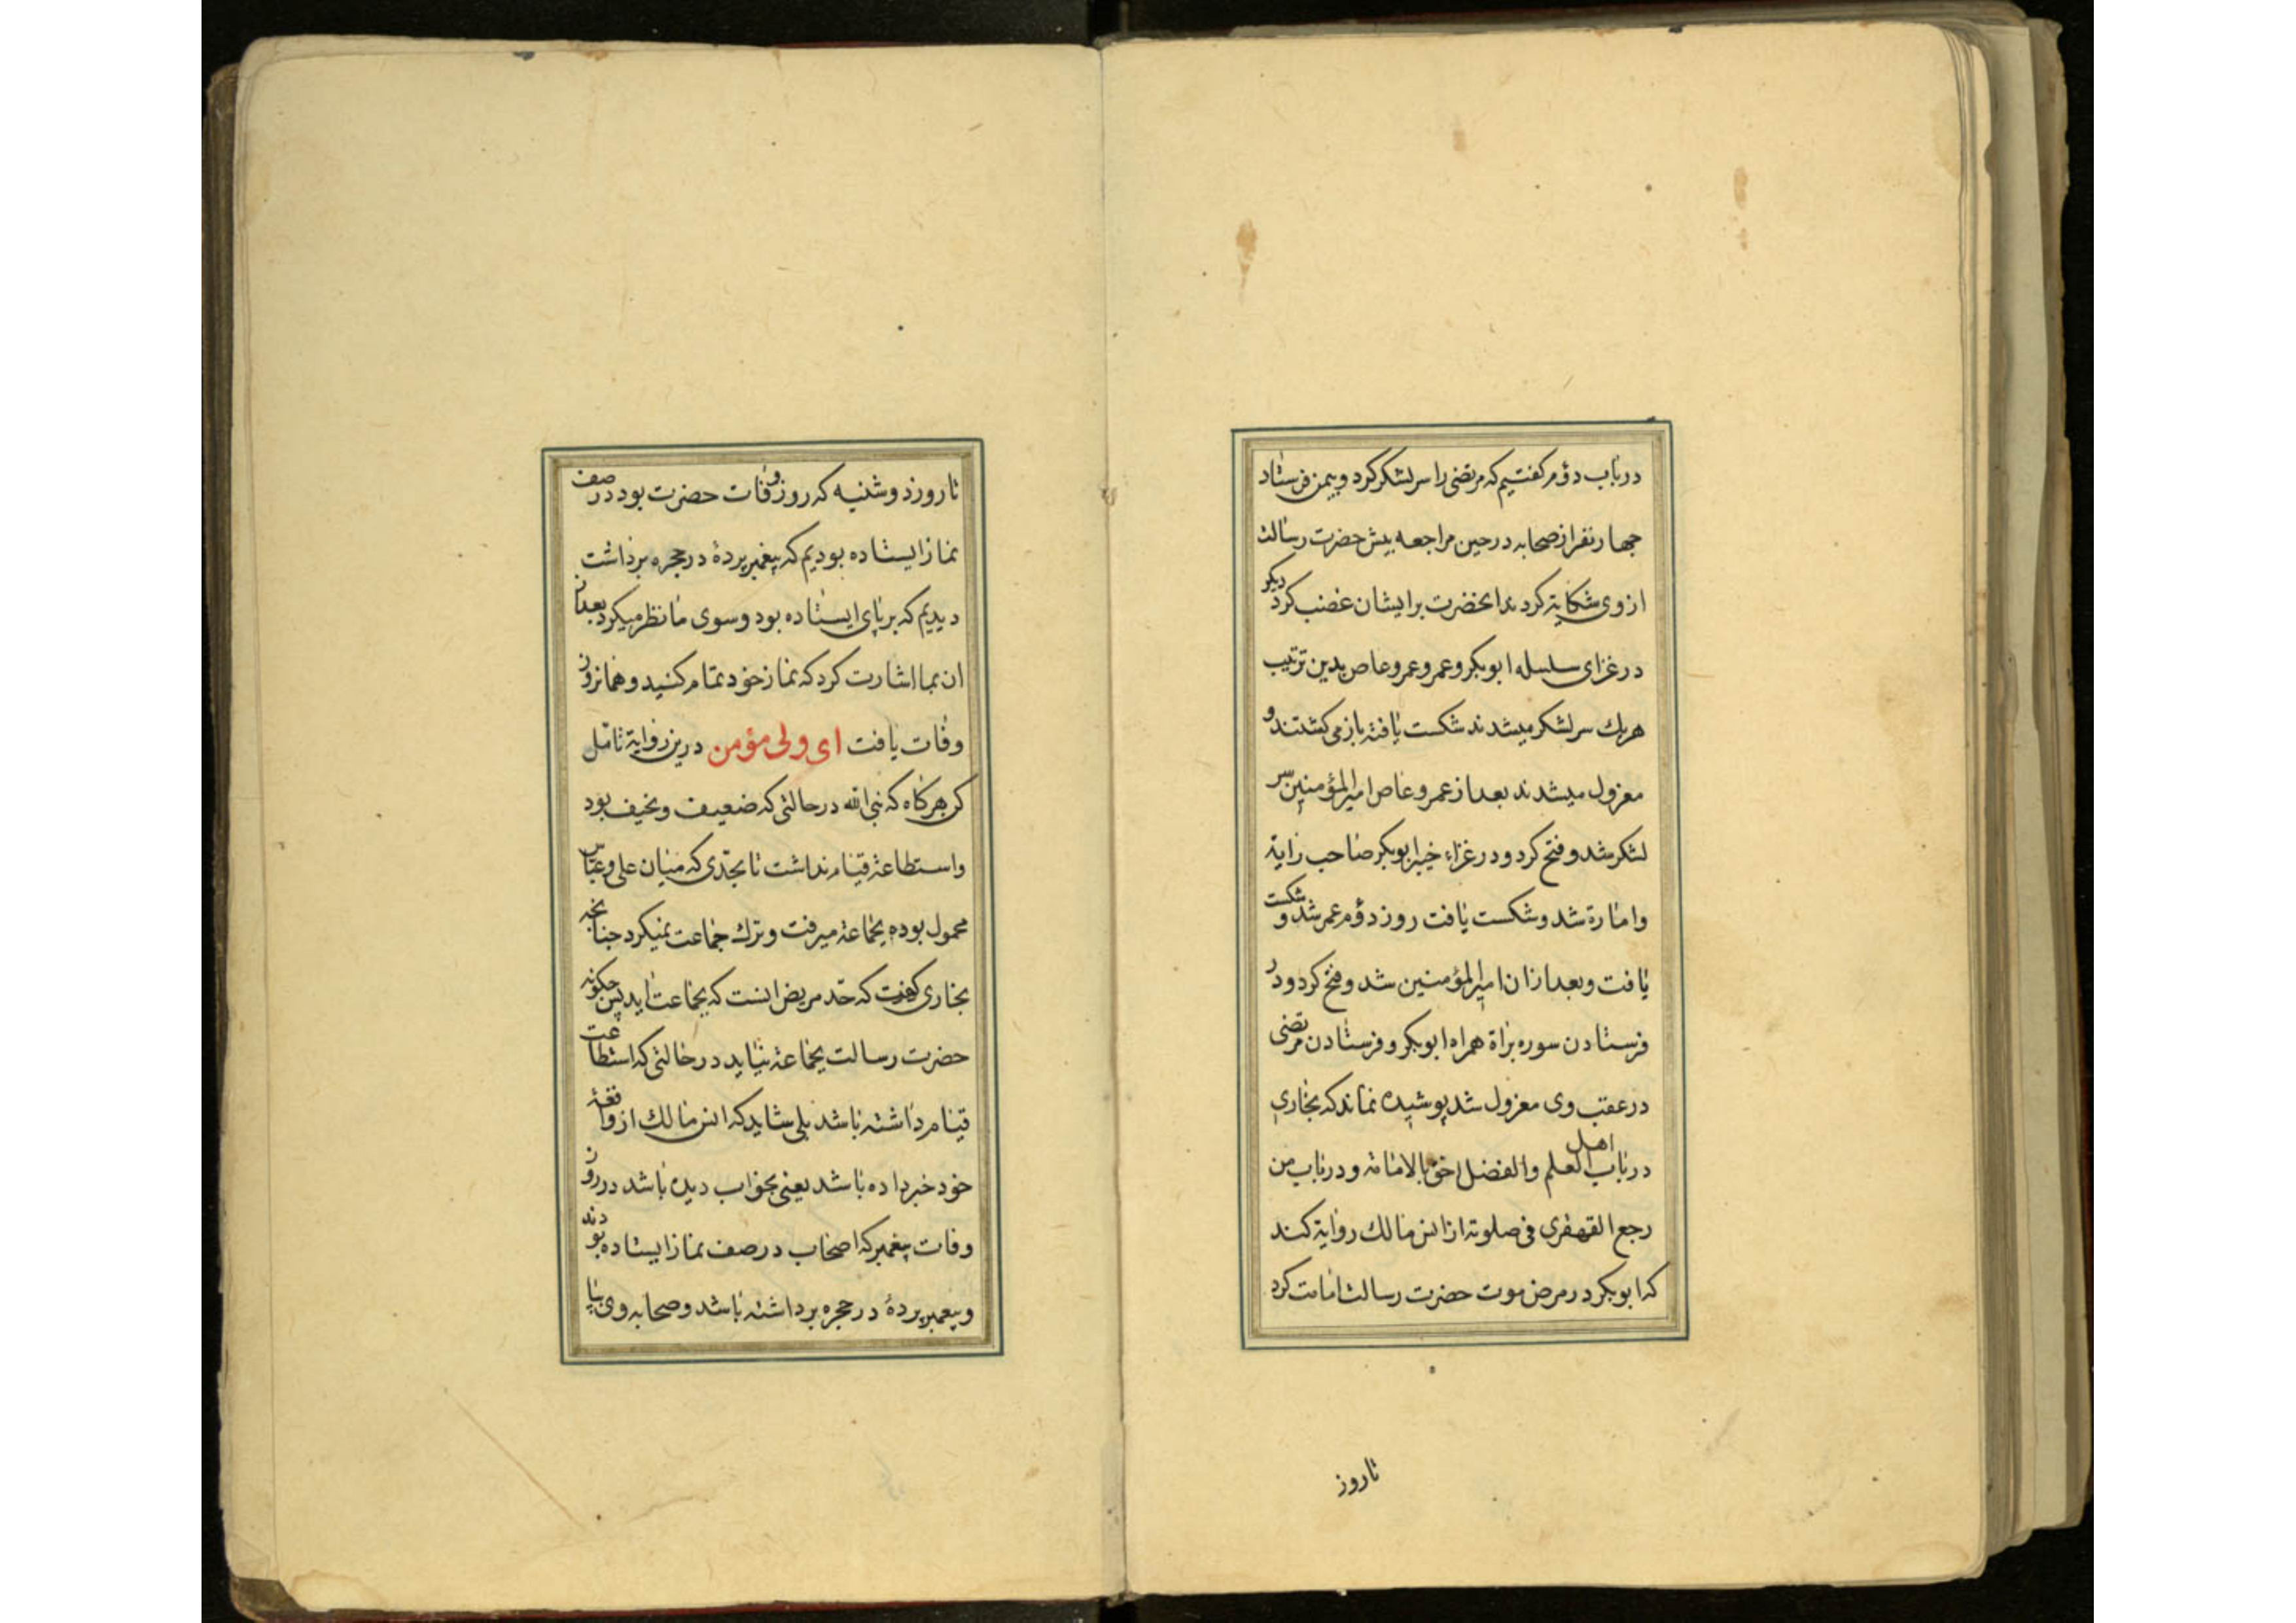 درباب دوم کفتیم که مرتضی را سر لشکر کرد و بیمن فرستاد
جهار نفر از صحابه در حین مراجعه بیش حضرت رسالت
از وی شکایة کردند انحضرت بر ایشان غضب کرد دیکر
در غزای سلسله ابوبکر و عمر و عمر و عاص بدین ترتیب
هریك سر لشکر میشدند شکست یافته باز می کشتند و
معزول میشدند بعد از عمر و عاص امیرالمؤمنین سر
لشکر شد و فتح کرد و در غزاء خیبر ابوبکر صاحب رایة
و امارة شد و شکست یافت روز دوم عمر شد و شکست
یافت و بعد از ان امیرالمؤمنین شد و فتح کرد و در
فرستادن سوره براة همراه ابوبکر و فرستادن مرتضی
در عقب وی معزول شد پوشیده نماند که بخاری
در باب اهل العلم والفضل احق بالامامة و در باب من
رجع القهقری فی صلوته از انس مالك روایة کند
که ابوبکر در مرض موت حضرت رسالت امامت کرد
تاروز
تا روز دوشنبه که روز وفات حضرت بود در صف
نماز ایستاده بودیم که پیغمبر پردهٔ در حجره برداشت
دیدیم که بر پای ایستاده بود و سوی ما نظر میکرد بعد از
ان بما اشارت کرد که نماز خود تمام کنید و همانروز
وفات یافت ای ولی مؤمن درین روایة تامل
کن هرکاه که نبی الله در حالتی که ضعیف و نحیف بود
و استطاعة قیام نداشت تا بحدی که میان علی و عباس
محمول بوده بجماعة میرفت و ترك جماعت نمیکرد جنانجه
بخاری کفت که حد مریض انست که بجماعت اید پس جکونه
حضرت رسالت بجماعة نیاید در حالتی که استطاعت
قیام داشته باشد بلی شاید که انس مالك از واقعهٔ
خود خبر داده باشد یعنی بخواب دیده باشد در روز
وفات پیغمبر که اصحاب در صف نماز ایستاده بودند
و پیغمبر پردهٔ در حجره برداشته باشد و صحابه وی بپا